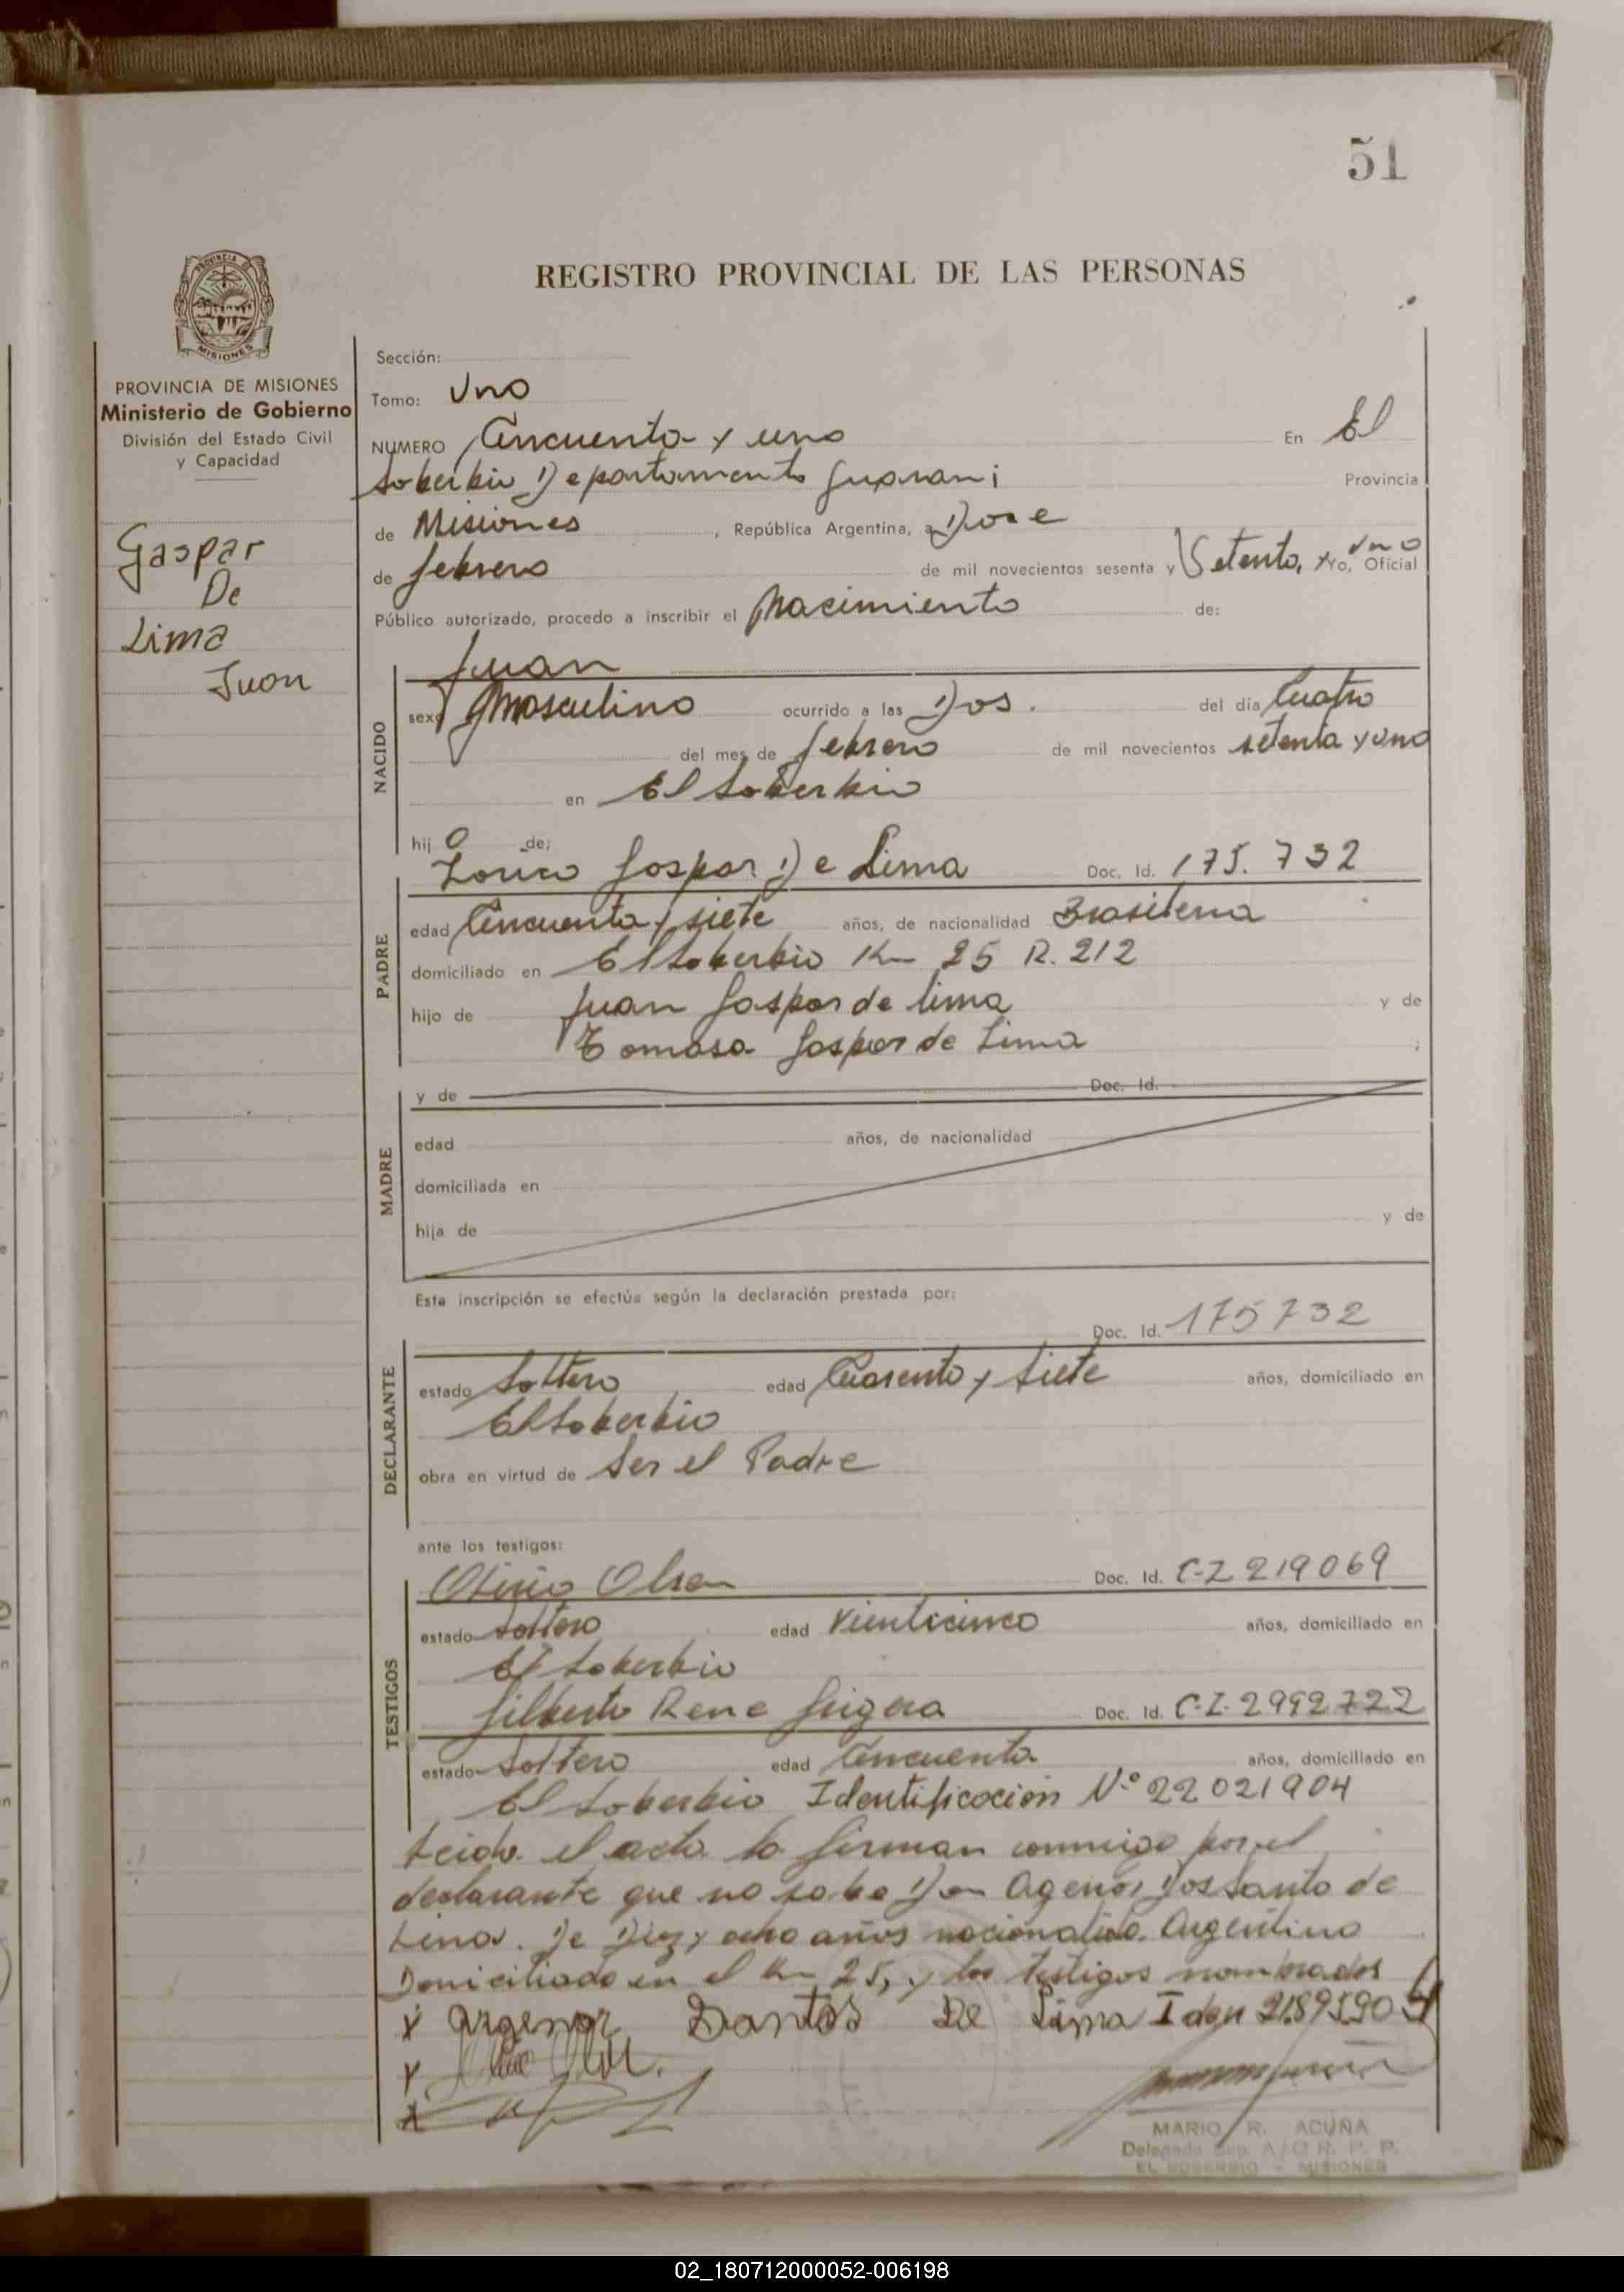 51
REGISTRO PROVINCIAL DE LAS PERSONAS
MISIONES
PROVINCIA DE MISIONES
Ministerio de Gobierno
División del Estado Civil
y Capacidad
Gaspar
De
Lima
Juan
Sección:
Tomo: Uno
NUMERO Cincuenta y uno En El
Soberbio Departamento Guarani Provincia
de Misiones, República Argentina, a Doce
de febrero de mil novecientos sesenta y Setenta y uno Yo, Oficial
Público autorizado, procedo a inscribir el Nacimiento de:
Juan
NACIDO
sexo Masculino ocurrido a las Dos. del día Cuatro
del mes de febrero de mil novecientos setenta y uno
en El Soberbio
hij o de:
Gaspar De Lima Doc. Id. 175.732
PADRE
edad Cincuenta y siete años, de nacionalidad Brasilena
domiciliado en El Soberbio Km 25 R. 212
hijo de Juan Gaspar de lima y de
Tomasa Gaspar de Lima ;
MADRE
y de Doc. Id.
edad años, de nacionalidad
domiciliada en
hija de y de
Esta inscripción se efectúa según la declaración prestada por:
Doc. Id. 175732
DECLARANTE
estado Soltero edad Cuarenta y Siete años, domiciliado en
El Soberbio
obra en virtud de Ser el Padre
ante los testigos:
TESTIGOS
Olsen Doc. Id. C-I 219069
estado Soltero edad Vienticinco años, domiciliado en
El Soberbio
Gilberto Rene Doc. Id. C.I. 2992722
estado Soltero edad Cincuenta años, domiciliado en
El Soberbio Identificocion N° 22021904
Leida el acta la firman conmigo por el
declarante que no sabe Don Agenor Dos Santo de
Lima. De Diez y ocho años nacionalida Argentino
Domiciliado en el Km 25, y los testigos nombrados
x Argenor Santos De Lima Iden 21895904
x
x
MARIO R. ACUÑA
Delegado Sup. A/C R. P. P.
EL SOBERBIO - MISIONES
02_180712000052-006198